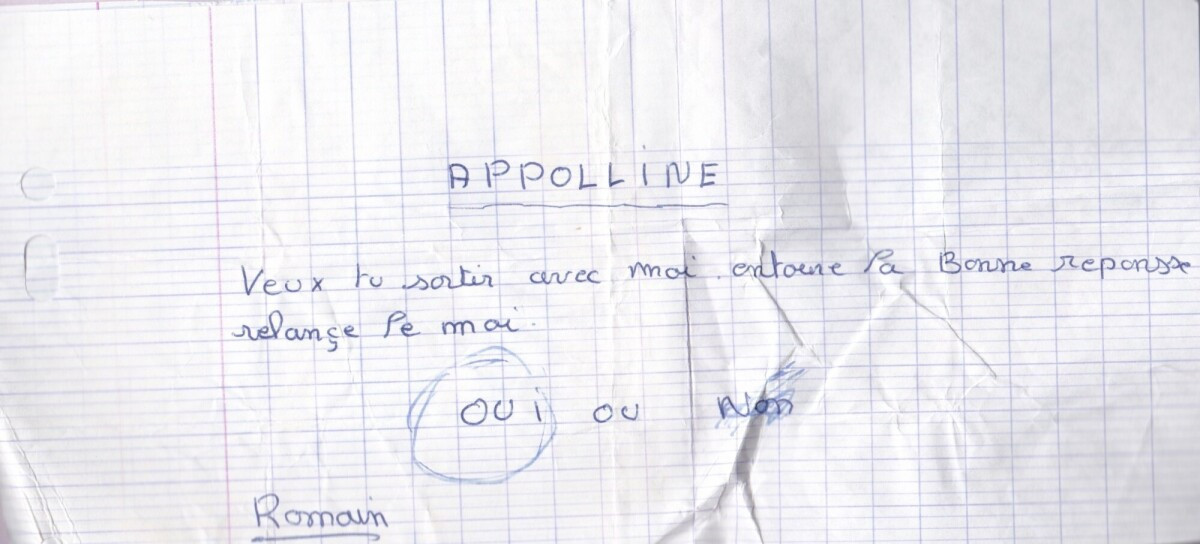 APPOLLINE
Veux tu sortir avec moi. entoure la Bonne reponse
relançe le moi.
OUi ou Non
Romain